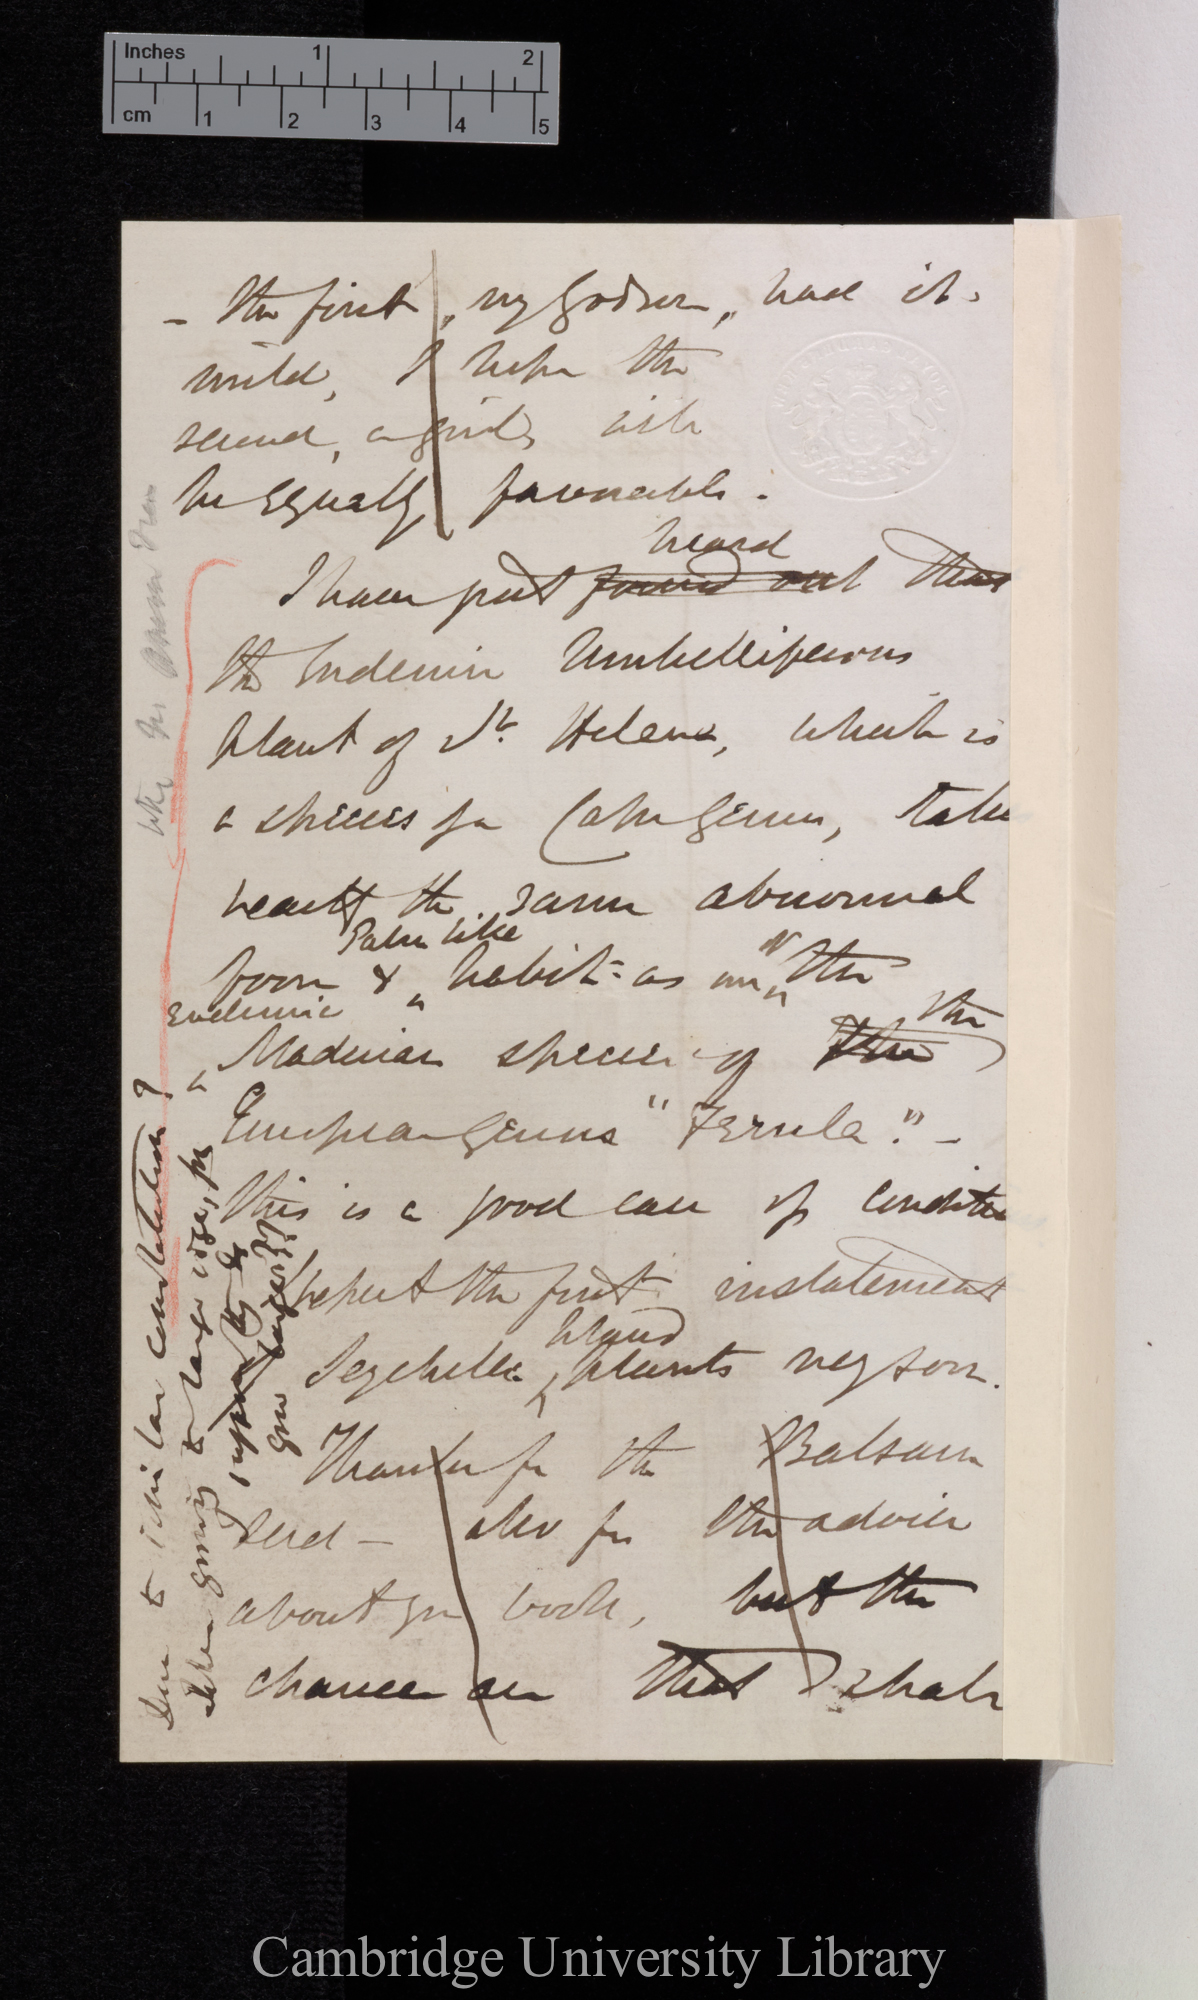 Inches 1 2
cm 1 2 3 4 5
– the first, my Godson, had it
mild, I hope the
second, a girl, will
be equally favorable.
heard
I have just found out that
the Endemic Umbelliferous
plant of St. Helena, which is
a species of a Cape Genus, takes
exactly the same abnormal
Palm like
form & habit as one of the
Endemic the
Madeiran species of the
European Genus "Ferula". –
This is a good case of condition
I expect the first instalment of
Island
Seychelle plants very soon.
Thanks for the Balsam
seed – also for the advice
about yr book, but the
chances are that I shall
like the
Due to similar constitution?
when growing to large size, for
grow larger??
Cambridge University Library